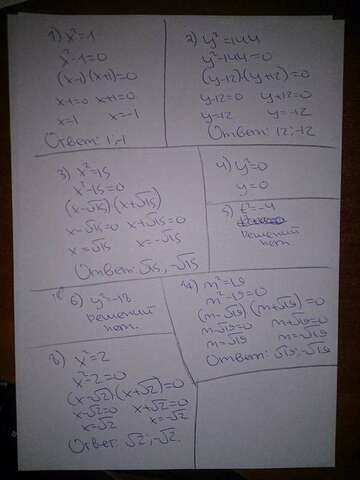 1) x²=1
x²-1=0
(x-1)(x+1)=0
x-1=0 x+1=0
x=1 x=-1
Ответ: 1;-1
2) y²=144
y²-144=0
(y-12)(y+12)=0
y-12=0 y+12=0
y=12 y=-12
Ответ: 12;-12
3) x²=15
x²-15=0
(x-√15)(x+√15)
x-√15=0 x+√15=0
x=√15 x=-√15
Ответ: √15,-√15
4) y²=0
y=0
5) t²=-4
решений
нет.
6) y²=-18
решений
нет.
m²=19
m²-19=0
(m-√19)(m+√19)=0
m-√19=0 m+√19=0
m=√19 m=-√19
Ответ: √19;-√19
8) x²=2
x²-2=0
(x-√2)·(x+√2)=0
x-√2=0 x+√2=0
x=√2 x=-√2
Ответ: √2;-√2.